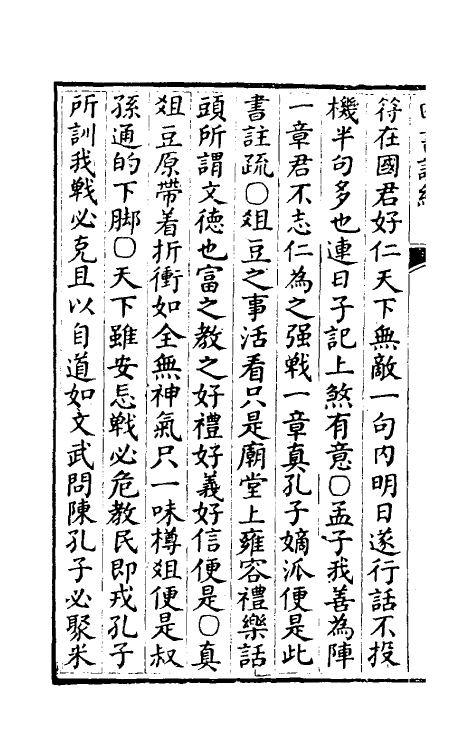 符在國君好仁天下無敵一句内明日遂行話不投
機半句多也連日子記上煞有意〇孟子我善為陣
一章君不志仁為之强戰一章真孔子嫡派便是此
書註疏〇俎豆之事活看只是廟堂上雍容禮樂話
頭所謂文德也富之教之好禮好義好信便是〇真
俎豆原帶着折衝如全無神氣只一味樽俎便是叔
孫通的下脚〇天下雖安忘戰必危教民即戎孔子
所訓我戰必克且以自道如文武問陳孔子必聚米